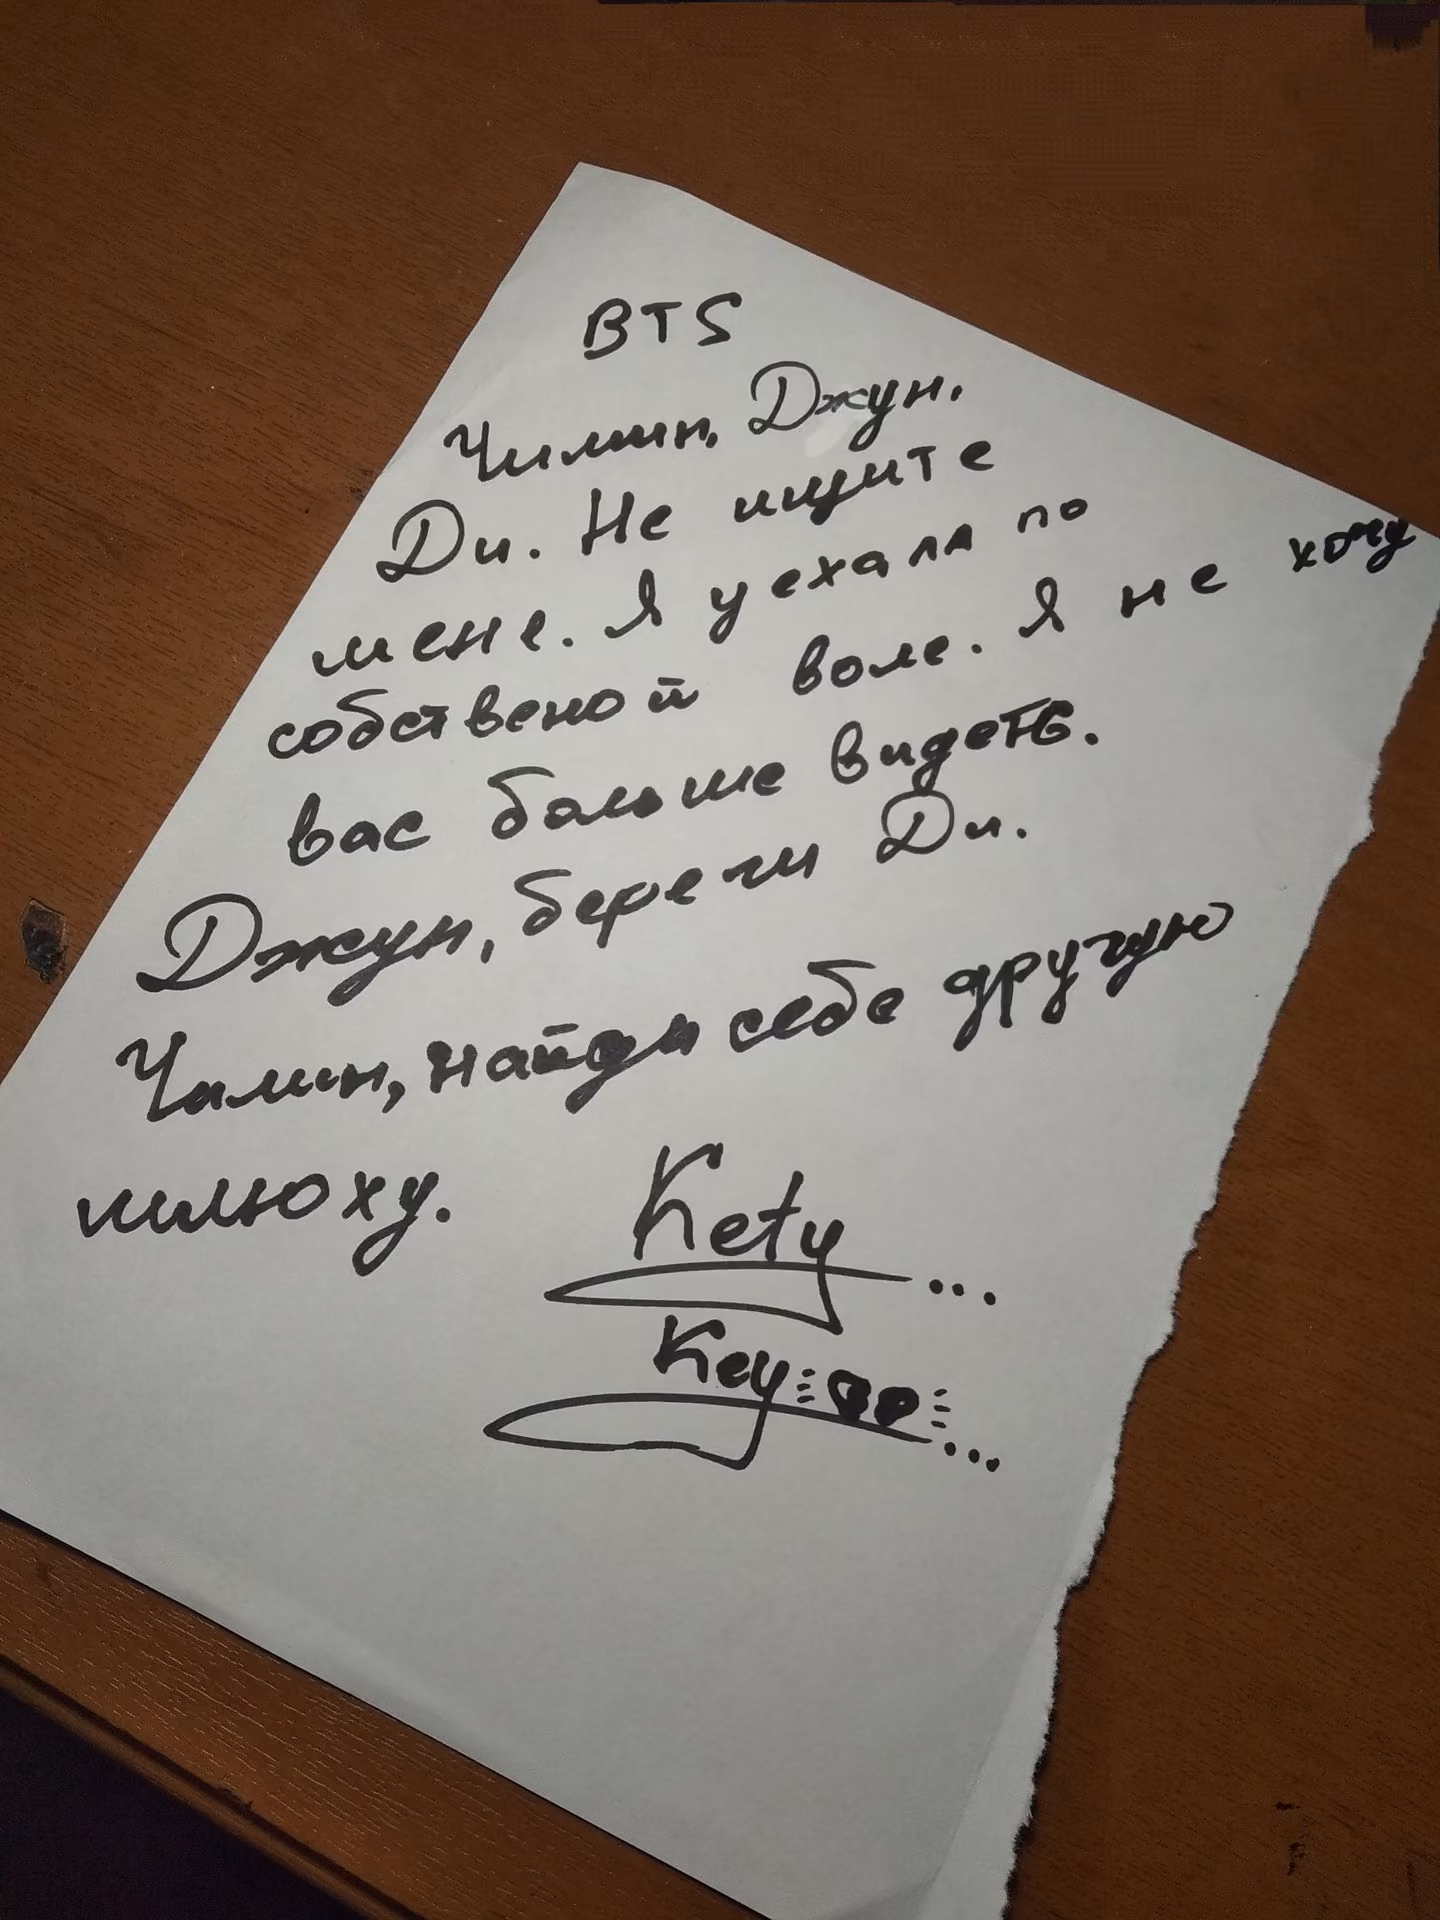 BTS
Чимин, Джун,
Ди. Не ищите
мене. Я уехала по
собственой воле. Я не хочу
вас больше видеть.
Джун, береги Ди.
Чимин, найди себе другую
шлюху.
Kety...
Key